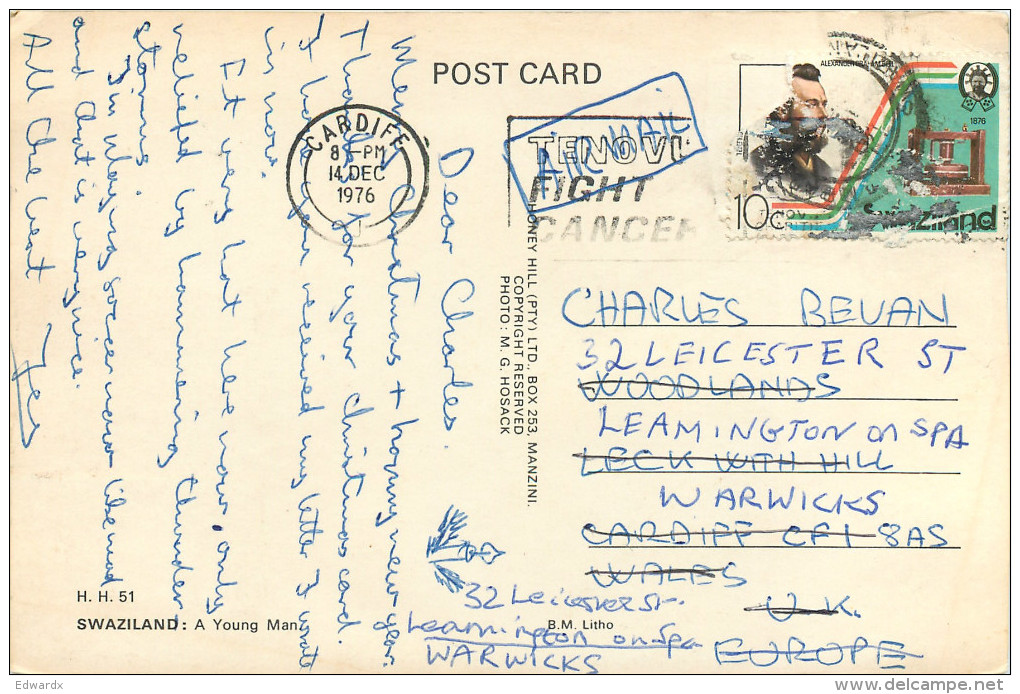 POST CARD
AIR MAIL
CARDIFF
8 - PM
14 DEC
1976
TENOVUS
FIGHT
CANCER
ALEXANDER GRAHAM BELL
1876
10c
Swaziland
Dear Charles.
Merry Christmas + happy new year.
Thanks for your Christmas card.
I hope you received my letter I wrote
in nov.
It very hot here now. only
relieted by hammering thunder
storms
I'm playing soccer now like mad
and that is very nice.
All the best
HONEY HILL (PTY) LTD., BOX 253, MANZINI.
COPYRIGHT RESERVED
PHOTO: M. G. HOSACK
CHARLES BEVAN
32 LEICESTER ST
WOODLANDS
LEAMINGTON on SPA
LECKWITH HILL
WARWICKS
CARDIFF CF1 8AS
WALES
U.K.
EUROPE
32 Leicester St.
Leamington on Spa
WARWICKS
H. H. 51
SWAZILAND: A Young Man.
B.M. Litho
Edwardx
www.delcampe.net